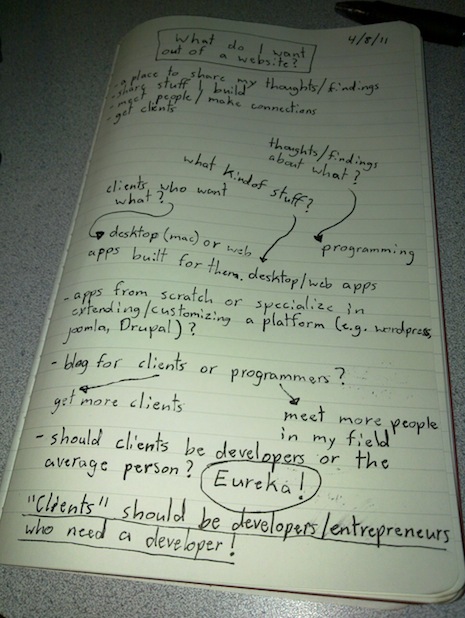 4/8/11
What do I want
out of a website?
- a place to share my thoughts/findings
- share stuff I build
- meet people/make connections
- get clients
thoughts/findings
about what?
what kind of stuff?
clients who want
what?
programming
desktop (mac) or web
apps built for them.
desktop/web apps
- apps from scratch or specialize in
extending/customizing a platform (e.g. wordpress,
joomla, Drupal)?
- blog for clients or programmers?
get more clients
meet more people
in my field
- should clients be developers or the
average person?
Eureka!
"Clients" should be developers/entrepreneurs
who need a developer!